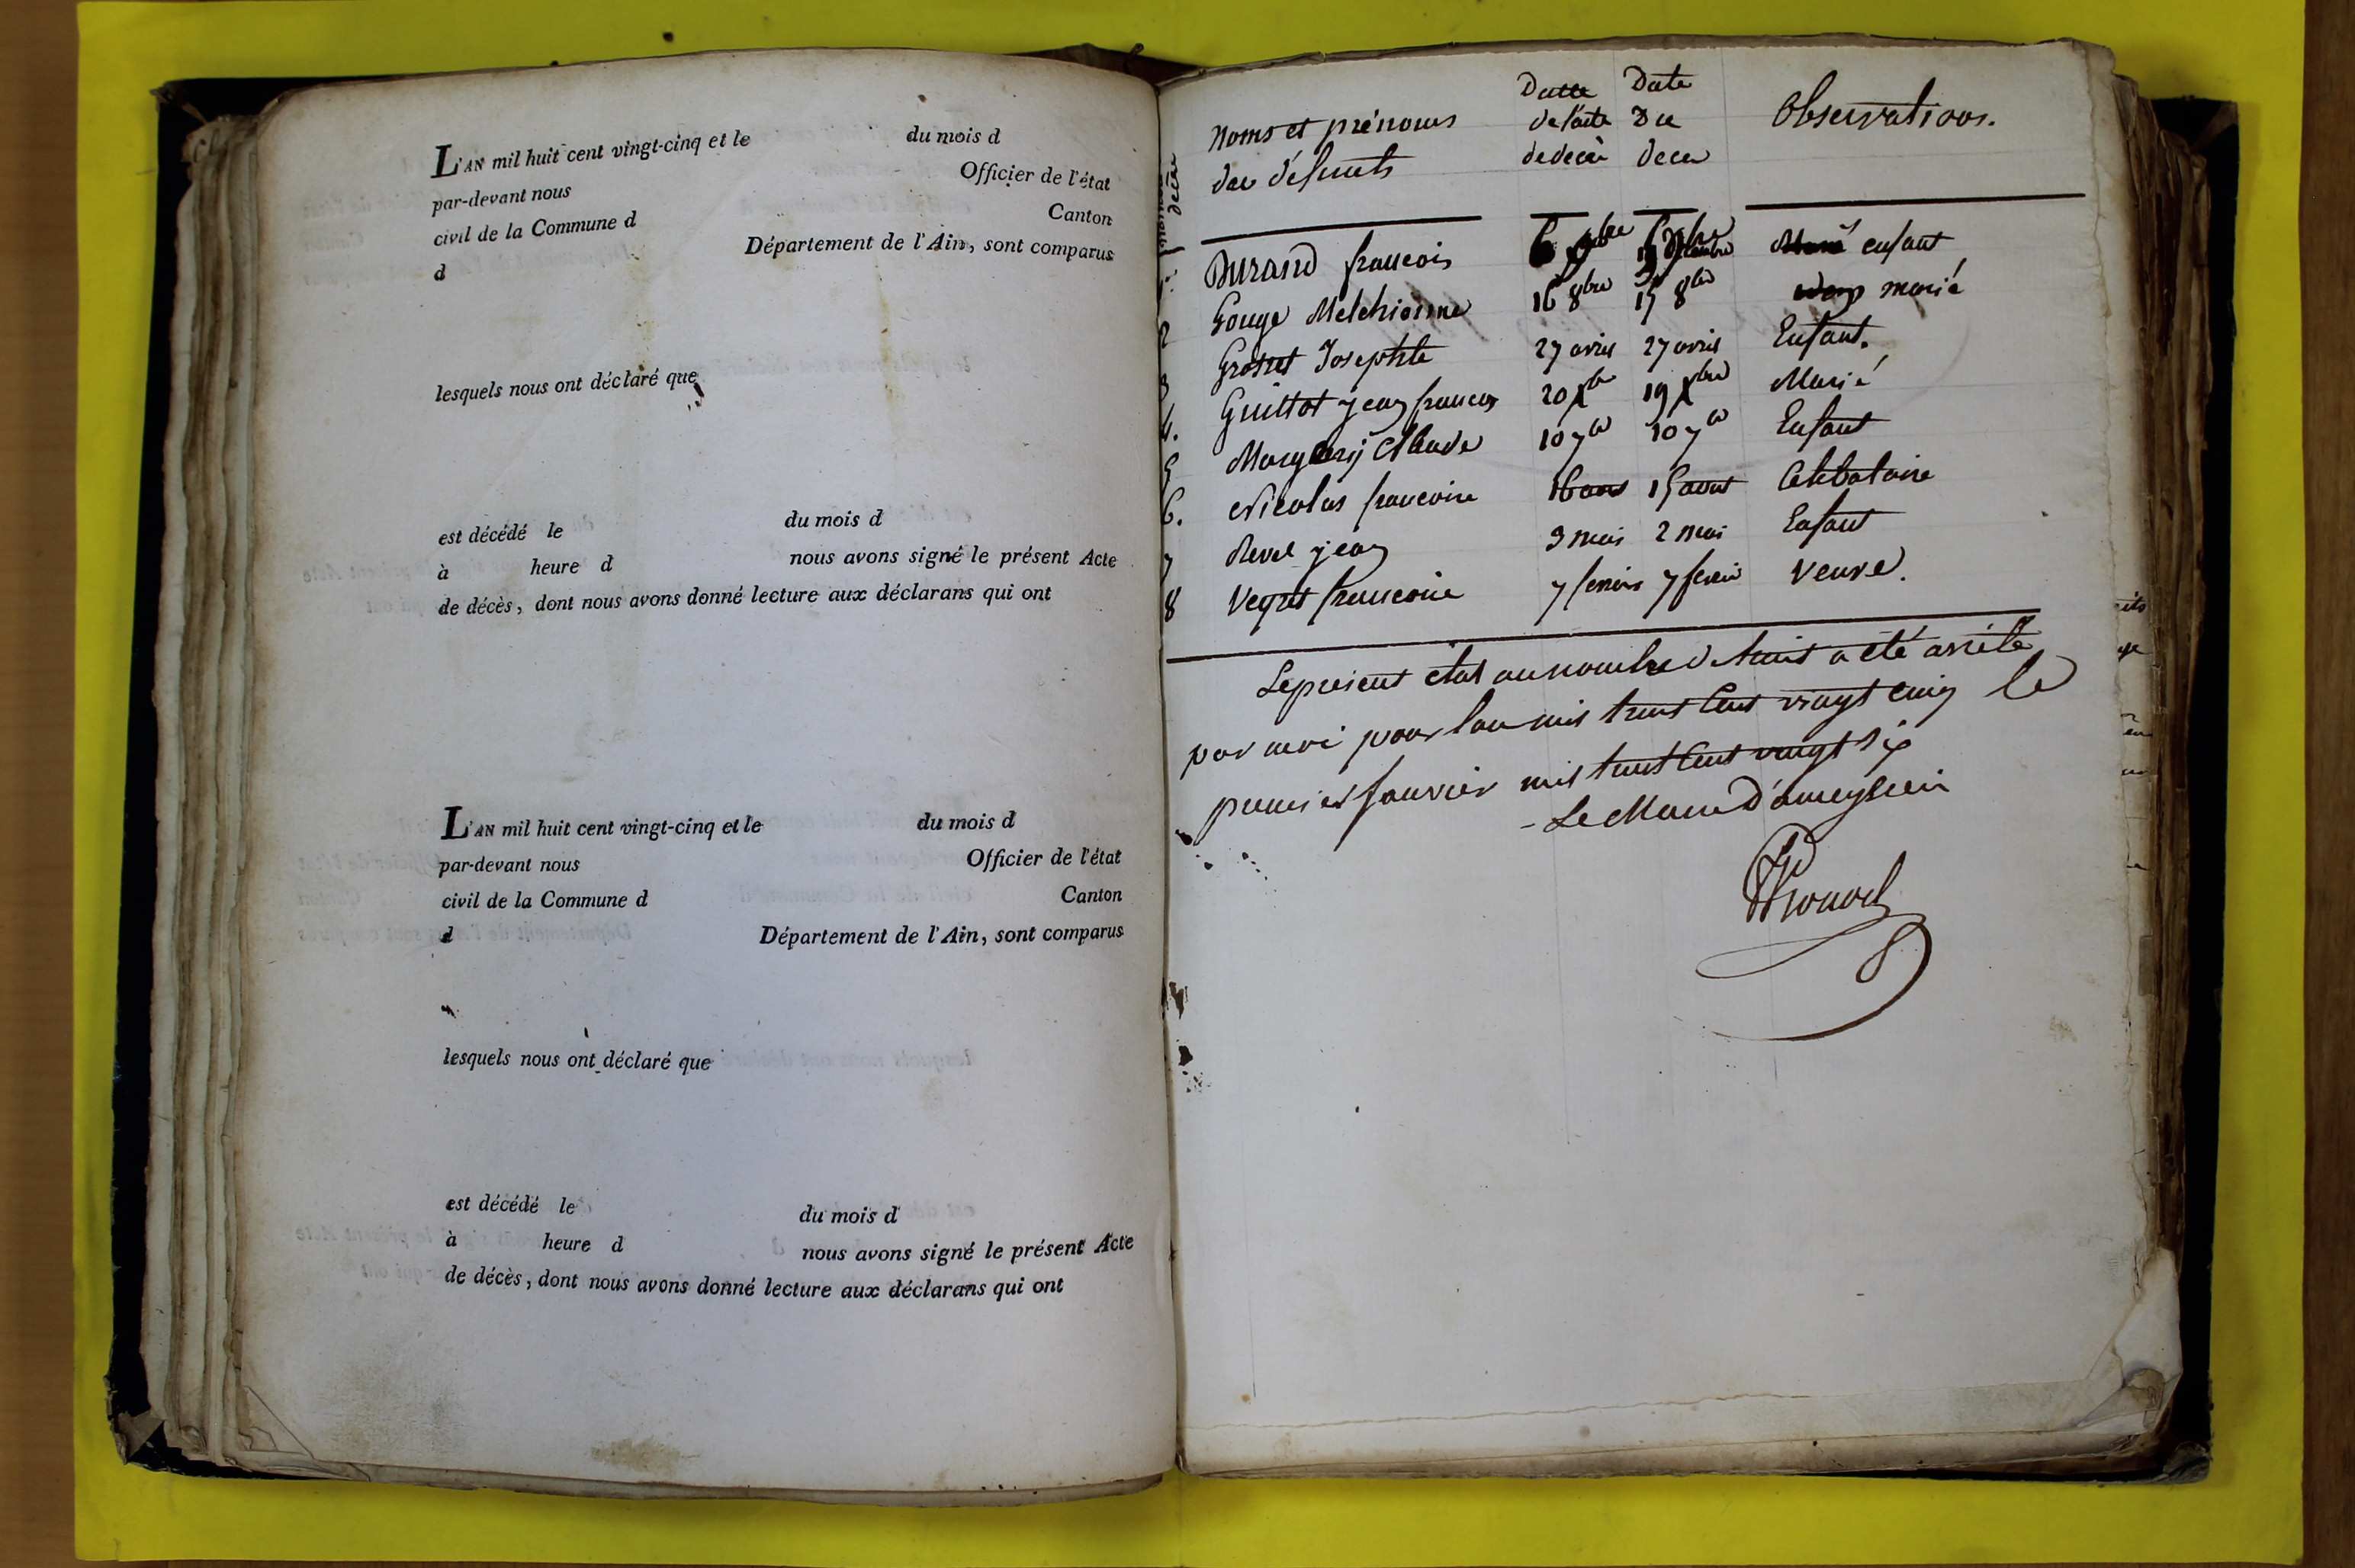 L'AN mil huit cent vingt-cinq et le du mois d
par-devant nous Officier de l'état
civil de la Commune d Canton
d Département de l'Ain, sont comparus
lesquels nous ont déclaré que
est décédé le du mois d
à heure d nous avons signé le présent Acte
de décès, dont nous avons donné lecture aux déclarans qui ont
L'AN mil huit cent vingt-cinq et le du mois d
par-devant nous Officier de l'état
civil de la Commune d Canton
d Département de l'Ain, sont comparus
lesquels nous ont déclaré que
est décédé le du mois d
à heure d nous avons signé le présent Acte
de décès, dont nous avons donné lecture aux déclarans qui ont
Noms et prénoms Date Date Observations.
des défunts de l'acte Du
de décès deces
Durand francois enfant
2 Gouge Melchionne 16 8bre 15 8bre marié
3 Grosset Josephte 27 avril 27 avril Enfant.
4. Guittot jean francois 20 Xbre 19 Xbre Marié
5 Claude 10 7bre 10 7bre Enfant
6. Nicolas francoise 16 aout 15 aout Celibataire
7 Revel jean 3 mai 2 mai Enfant
8 francoise 7 fevrier 7 fevrier Veuve.
Le present etat au nombre de huit a été arrêté
par moi pour l'an mil huit cent vingt cinq le
premier janvier mil huit cent vingt six
Le Maire d'ameyzieu